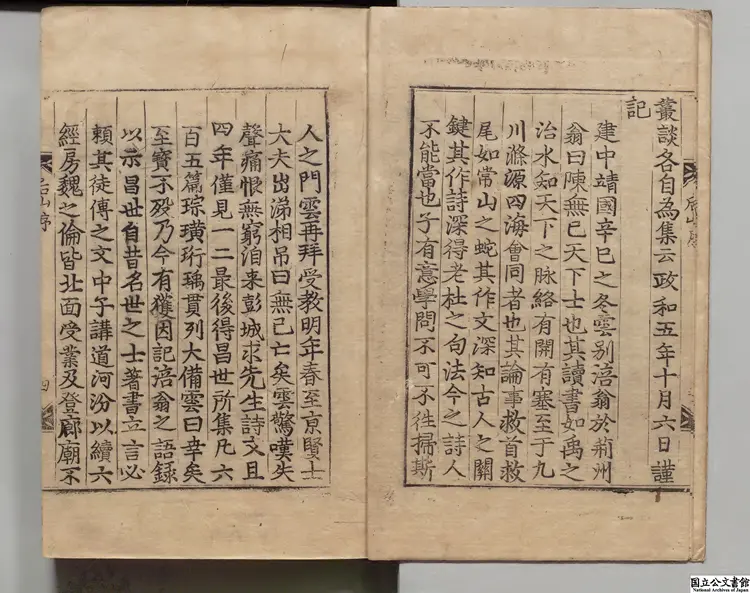 叢談各自為集云政和五年十月六日謹
記
建中靖國辛巳之冬雲别涪翁於荊州
翁曰陳無已天下士也其讀書如禹之
治水知天下之脉絡有開有塞至于九
川滌源四海會同者也其論事救首救
尾如常山之蛇其作文深知古人之關
鍵其作詩深得老杜之句法今之詩人
不能當也子有意學問不可不徃掃斯
人之門雲再拜受教明年春至京賢士
大夫出涕相吊曰無已亡矣雲驚嘆失
聲痛恨無窮洎来彭城求先生詩文且
四年僅見一二最後得昌世所集凡六
百五篇琮璜珩瑀貫列大備雲曰幸矣
至寶不歿乃今有獲因記涪翁之語錄
以示昌世自昔名世之士著書立言必
頼其徒傳之文中子講道河汾以續六
經房魏之倫皆北面受業及登廊廟不
后山序
四
国立公文書館
National Archives of Japan